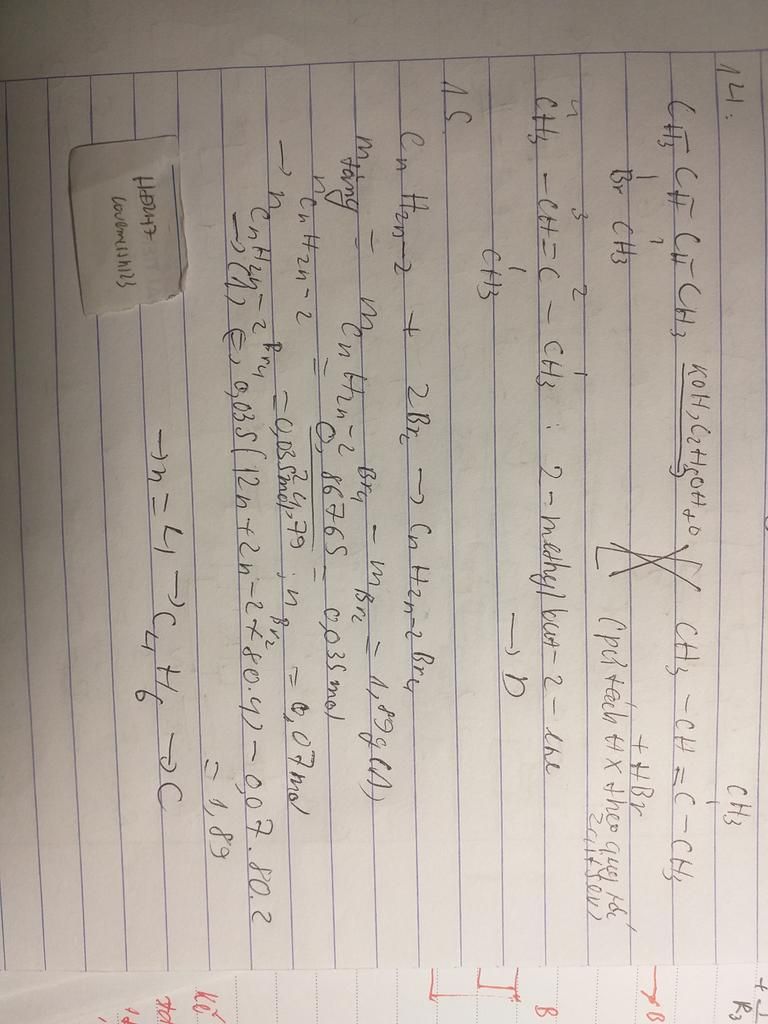 14.
CH3
CH3-CH-CH-CH3 KOH, C2H5OH, to CH3-CH=C-CH3
Br CH3 + HBr
(pư tách HX theo quy tắc
Zaitsev)
4 3 2 1
CH3-CH=C-CH3: 2-methylbut-2-ene
CH3 → D
15
CnH2n-2 + 2Br2 → CnH2n-2Br4
m tăng = m CnH2n-2Br4 - mBr2 = 1,89g (1)
n CnH2n-2 = 0,86765 = 0,035mol
24,79
→ n CnH2n-2Br4 = 0,035mol; nBr2 = 0,07mol
→ (1) ⇔ 0,035(12n+2n-2+80.4) - 0,07.80.2
= 1,89
→ n = 4 → C4H6 → C
HĐ247
→ B
B